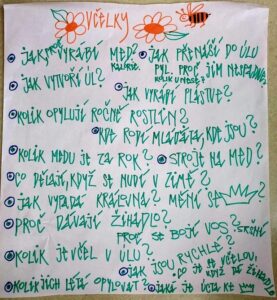 VČELKY
JAK PROČ VYRÁBÍ MED? JAK PŘENÁŠÍ DO ÚLU
PYL, PROČ JÍM NESPADNE
KOLIK UNESE?
JAK VYTVOŘÍ ÚL? JAK VYRÁBÍ PLÁSTVE?
KOLIK OPYLUJÍ ROČNĚ ROSTLIN?
KDE RODÍ MLÁĎATA, KDE JSOU?
KOLIK MEDU JE ZA ROK? STROJE NA MED?
CO DĚLAJÍ, KDYŽ SE NUDÍ V ZIMĚ?
JAK VYPADÁ KRÁLOVNA? MĚNÍ SE
PROČ DÁVAJÍ ŽIHADLO?
PROČ SE BOJÍ VOS?
KOLIK JE VČEL V ÚLU?
JAK JSOU RYCHLÉ?
CO JE VČELOU, KDYŽ DÁ ŽIHADLO
KOLIK JICH LÉTÁ OPYLOVAT? JAKÁ JE